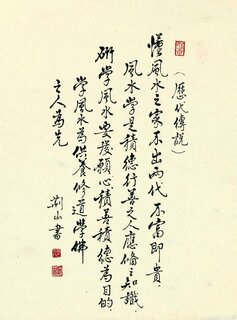 懂風水之家不出兩代不富即貴
（歷代傳說）
風水學是積德行善之人應修之知識
研學風水要發願心積善積德為目的
學風水為供養修道學佛
之人為先
荆山書